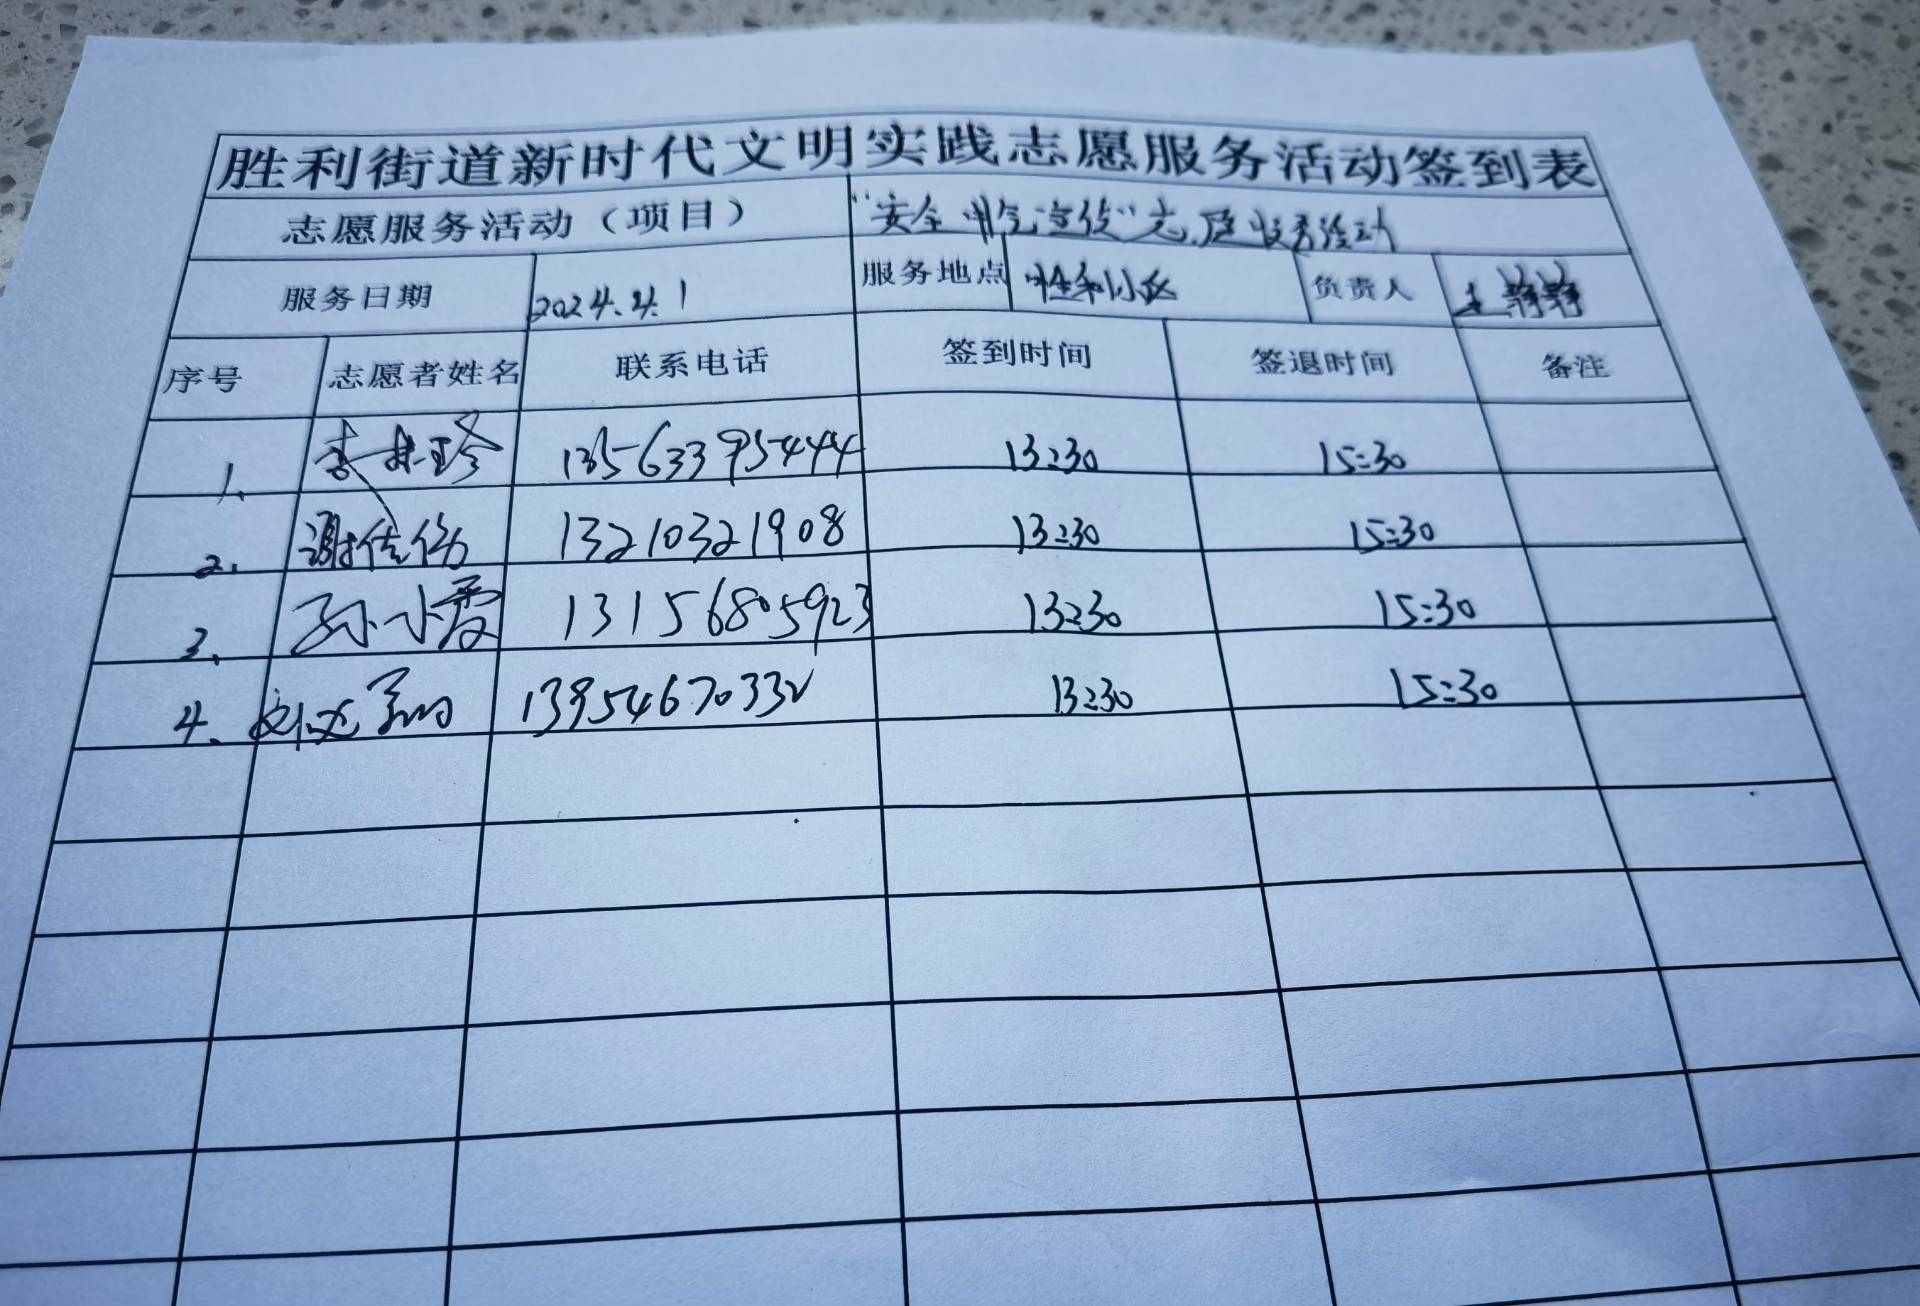 胜利街道新时代文明实践志愿服务活动签到表
志愿服务活动（项目） “安全用气宣传”志愿服务活动
服务日期 2024.4.1 服务地点 胜利小区 负责人 王静静
序号 志愿者姓名 联系电话 签到时间 签退时间 备注
1. 李林玲 13563395444 13:30 15:30
2. 谢佳 13210321908 13:30 15:30
3. 孙小霞 13156805923 13:30 15:30
4. 13954670332 13:30 15:30